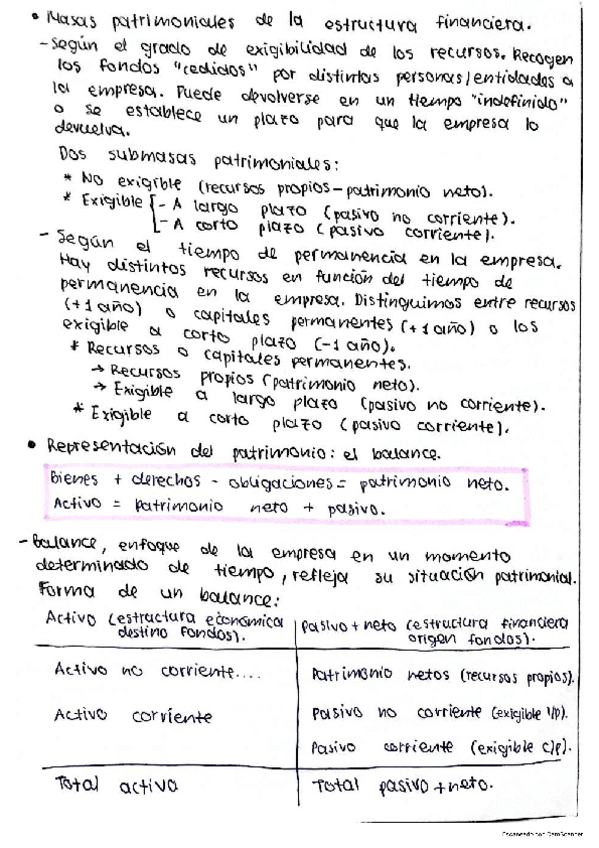 • Masas patrimoniales de la estructura financiera.
- Según el grado de exigibilidad de los recursos. Recogen
los fondos "cedidos" por distintas personas/entidades a
la empresa. Puede devolverse en un tiempo "indefinido"
o se establece un plazo para que la empresa lo
devuelva.
Dos submasas patrimoniales:
* No exigible (recursos propios - patrimonio neto).
* Exigible - A largo plazo (pasivo no corriente).
- A corto plazo (pasivo corriente).
- Según el tiempo de permanencia en la empresa.
Hay distintos recursos en función del tiempo de
permanencia en la empresa. Distinguimos entre recursos
(+1 año) o capitales permanentes (+1 año) o los
exigible a corto plazo (-1 año).
* Recursos o capitales permanentes.
→ Recursos propios (patrimonio neto).
→ Exigible a largo plazo (pasivo no corriente).
* Exigible a corto plazo (pasivo corriente).
• Representación del patrimonio: el balance.
Bienes + derechos - obligaciones = patrimonio neto.
Activo = patrimonio neto + pasivo.
- Balance, enfoque de la empresa en un momento
determinado de tiempo, refleja su situación patrimonial.
Forma de un balance:
Activo (estructura económica
destino fondos).
Pasivo + neto (estructura financiera
origen fondos).
Activo no corriente....
Patrimonio netos (recursos propios).
Activo corriente
Pasivo no corriente (exigible l/p).
Pasivo corriente (exigible c/p).
Total activo
Total pasivo + neto.
Escaneado con CamScanner